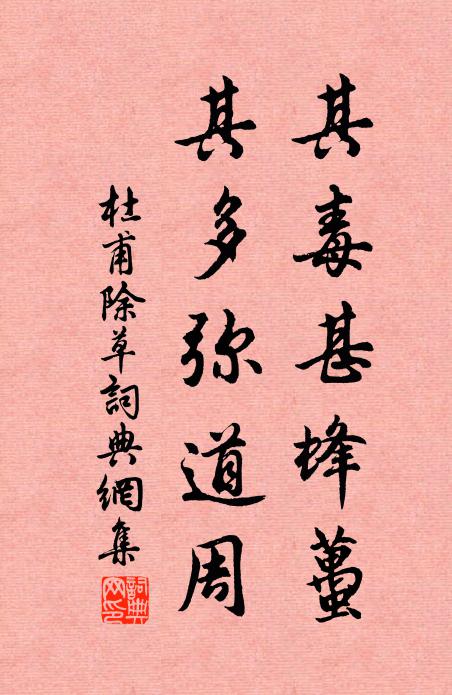 其毒甚蜂蠆
其多弥道周
杜甫除草詞典網集
詞典网印